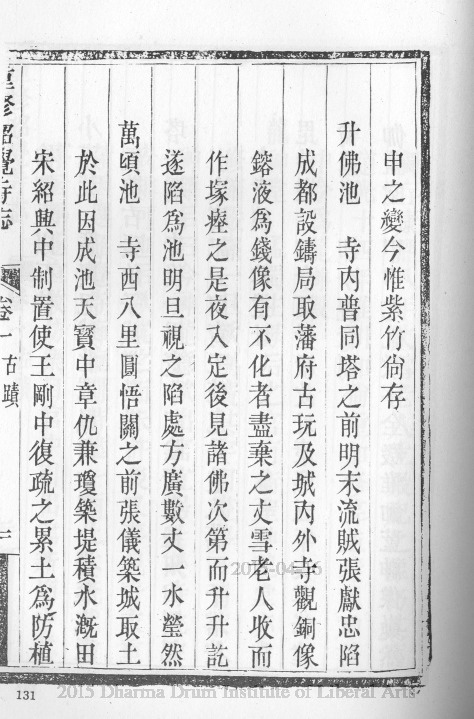 申之變今惟紫竹尙存
升佛池　寺內普同塔之前明末流賊張獻忠陷
成都設鑄局取藩府古玩及城內外寺觀銅像
鎔液爲錢像有不化者盡棄之丈雪老人收而
作塚瘞之是夜入定後見諸佛次第而升升訖
遂陷爲池明旦視之陷處方廣數丈一水瑩然
萬頃池　寺西八里圓悟關之前張儀築城取土
於此因成池天寶中章仇兼瓊築堤積水漑田
宋紹興中制置使王剛中復疏之累土爲防植
重修昭覺寺志
卷一 古蹟
131
2015 Dharma Drum Institute of Liberal Arts